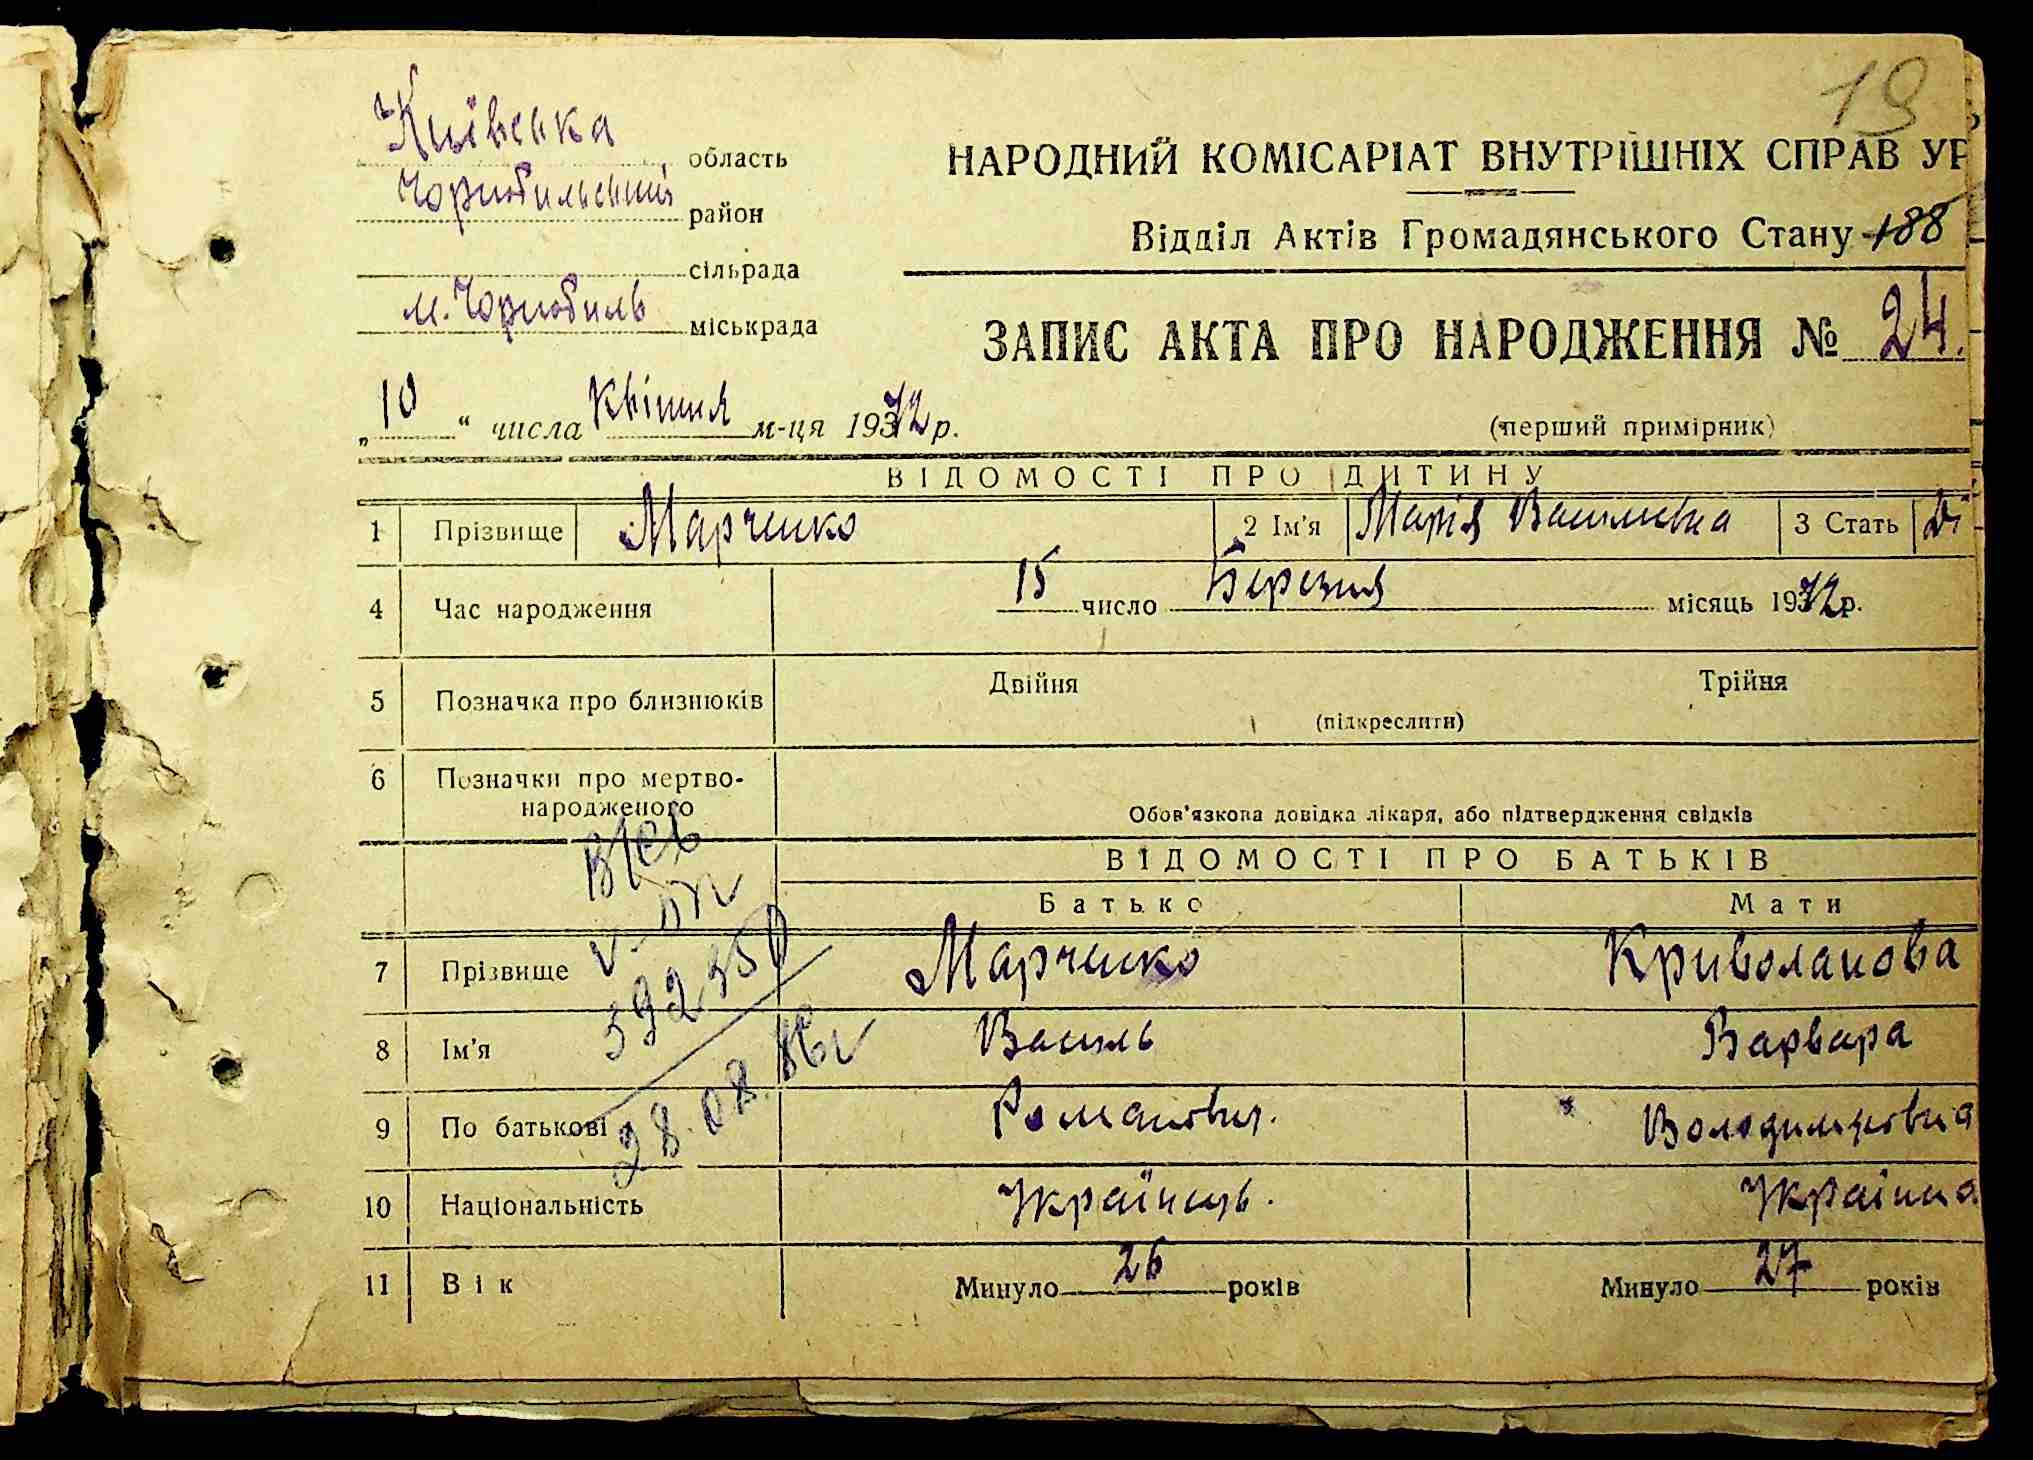 19
Київська область
Чорнобильський район
сільрада
м. Чорнобиль міськрада
НАРОДНИЙ КОМІСАРІАТ ВНУТРІШНІХ СПРАВ УР
Відділ Актів Громадянського Стану 188
ЗАПИС АКТА ПРО НАРОДЖЕННЯ № 24.
„10“ числа Квітня м-ця 1942 р.
(перший примірник)
ВІДОМОСТІ ПРО ДИТИНУ
1 Прізвище Марченко 2 Ім'я Марія Василівна 3 Стать Ді
4 Час народження 15 число Березня місяць 1942 р.
5 Позначка про близнюків Двійня Трійня
(підкреслити)
6 Позначки про мертво-
народженого
Обов'язкова довідка лікаря, або підтвердження свідків
ВІДОМОСТІ ПРО БАТЬКІВ
Батько Мати
7 Прізвище Марченко Криволапова
8 Ім'я Василь Варвара
9 По батькові Романович. Володимировна
10 Національність Українець. Українка
11 Вік Минуло 26 років Минуло 27 років
392350
28.08.86г